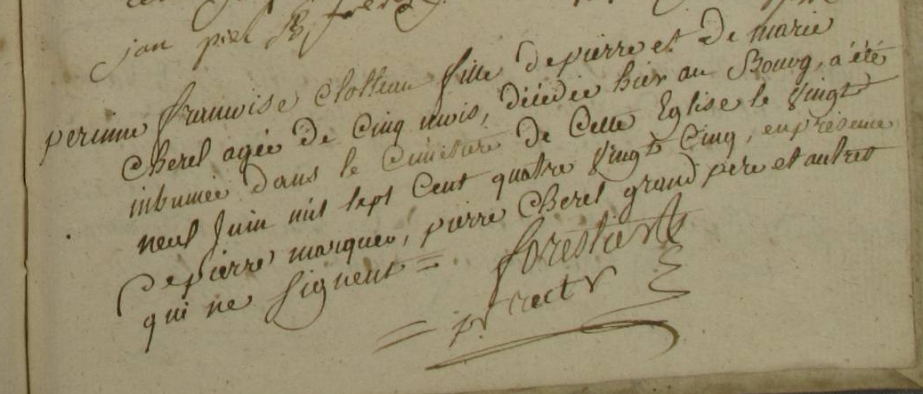 jan piel
perinne francoise Clolteau fille de pierre et De marie
Cherel agée De Cinq mois, décédée hier au Bourg, a été
inhumée dans le Cimetiere De Cette Eglise le vingt
neuf Juin mil sept Cent quatre vingt Cinq, en présence
De pierre marquer, pierre Cherel grand pere et autres
qui ne signent =
forestier
pr rectr